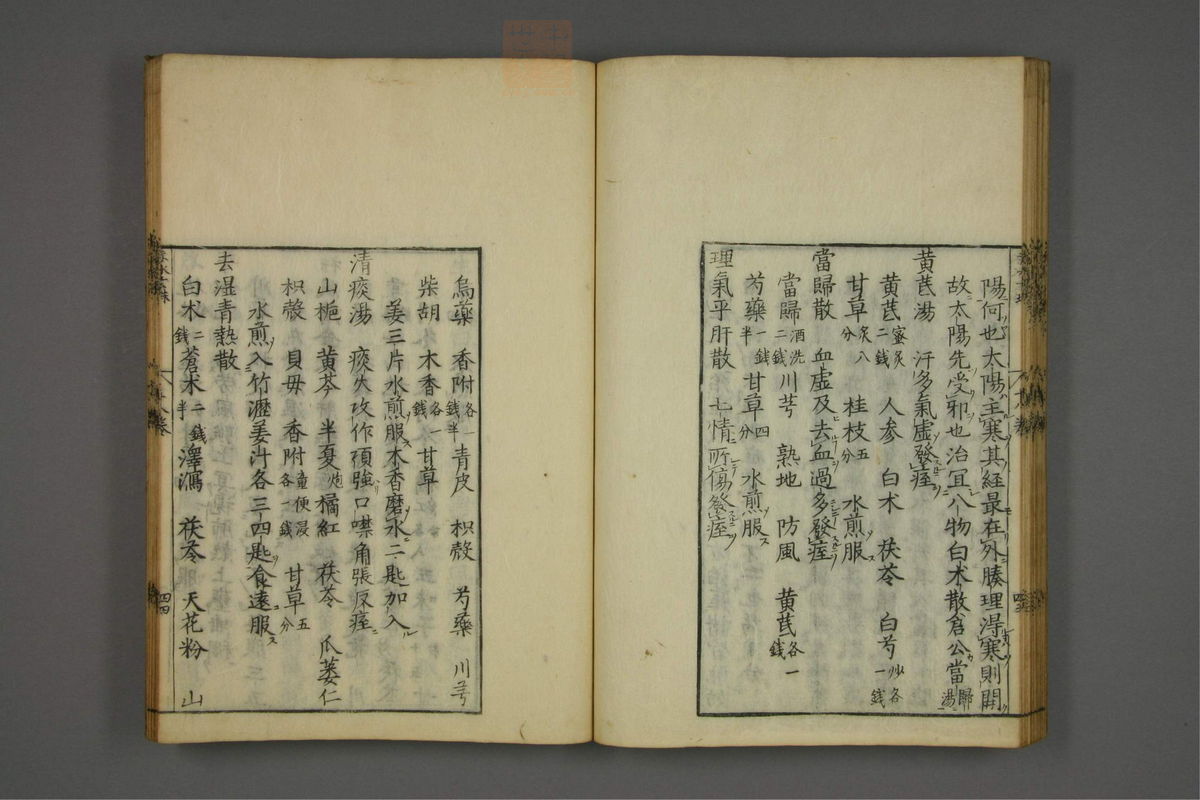 陽何也太陽主寒其経最在外腠理得寒則開
故太陽先受邪也治宜八物白朮散倉公當歸湯
黄芪湯　汗多氣虚發痓
黄芪蜜炙二銭　人参　白朮　茯苓　白芍炒各一銭
甘草炙八分　桂枝五分　水煎服
當歸散　血虚及去血過多發痓
當歸酒洗二銭　川芎　熟地　防風　黄芪各一銭
芍藥一銭半　甘草四分　水煎服
理氣平肝散　七情所傷發痓
烏藥　香附各一銭半　青皮　枳殻　芍藥　川芎
柴胡　木香各一銭　甘草
姜三片水煎服木香磨水二匙加入
清痰湯　痰火攻作項強口噤角張反痓
山梔　黄芩　半夏炮　橘紅　茯苓　瓜蒌仁
枳殻　貝母　香附童便浸各一銭　甘草五分
水煎入竹瀝姜汁各三四匙食遠服
去湿青熱散
白朮二銭　蒼朮二銭半　澤瀉　茯苓　天花粉　山